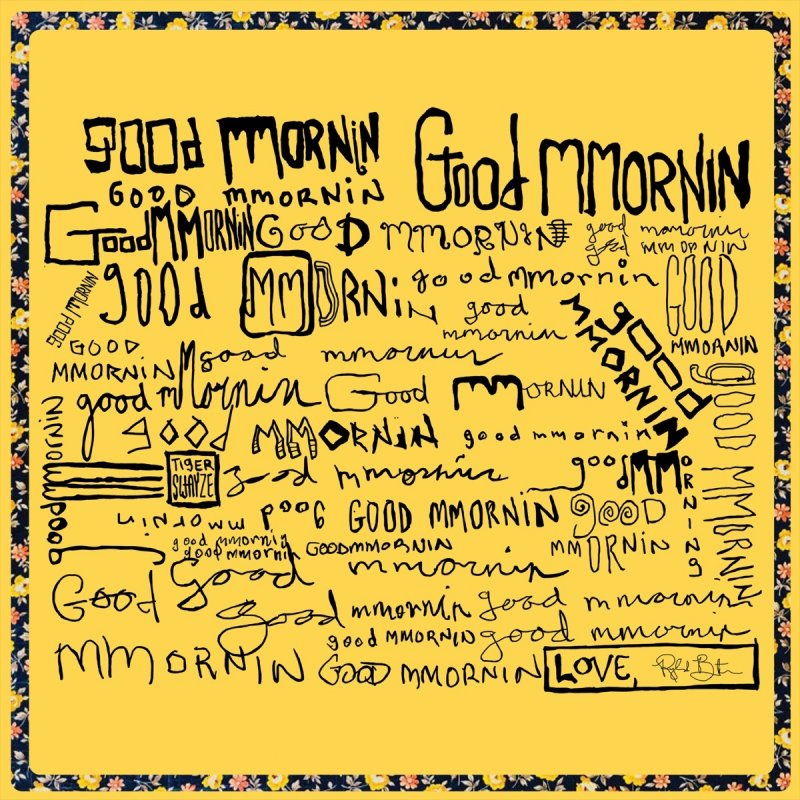 good MMORNIN
Good MMORNIN
GOOD mmornin
Good MMORNIN
GOOD MMORNIN
good mmornin
good MMORNIN
good MMORNIN
gOOd MMORNiN
good mmornin
GOOD MMORNIN
good mmornin
good MMORNIN
GOOD MMORNIN
good mmornin
good mMornin
Good MMORNIN
good MMORNIN
good mmornin
good MMORNING
gOOD MMORNIN
good mmornin
TIGER
SWAYZE
good mmornin
good mmornin
GOOD MMORNIN
gOOD MMORNIN
good mmornin
good mmornin
GOOD MMORNIN
Good mmornin
Good MMORNIN
good mmornin
good mmornin
good MMORNIN
good mmornin
GOOD MMORNIN
LOVE,